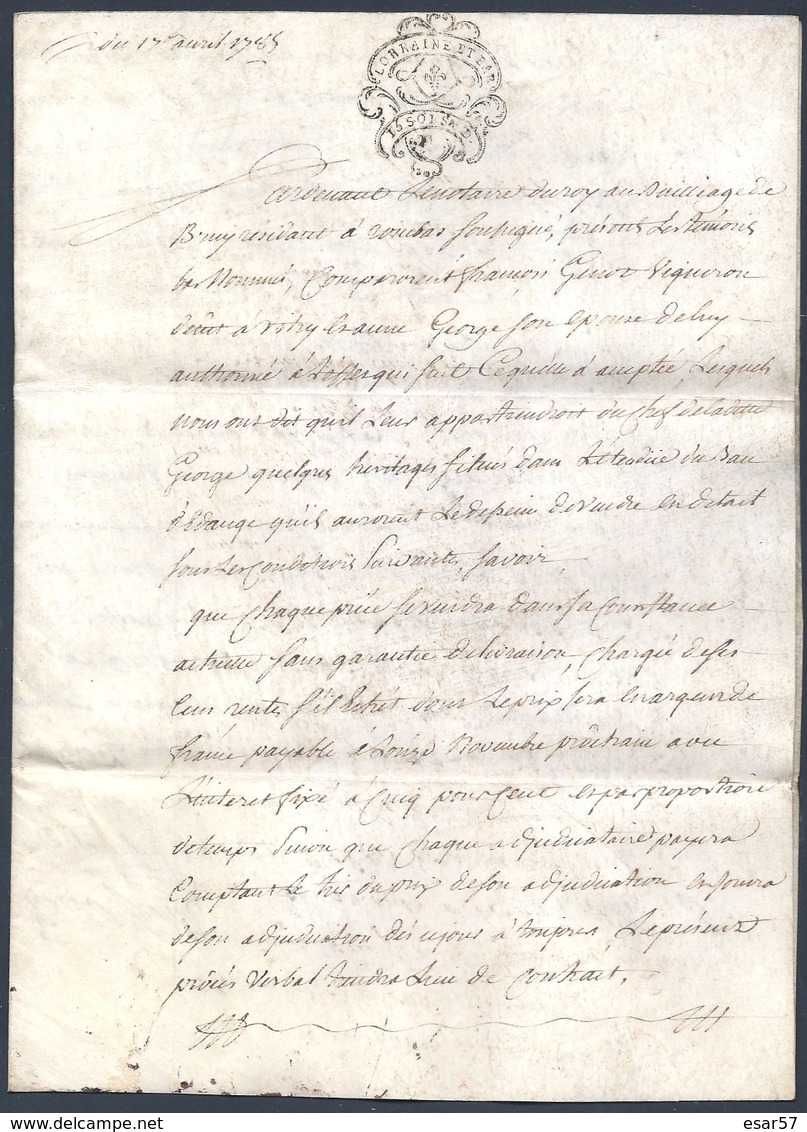 du 17e avril 1785
LORRAINE ET BAR
15 SOLS
Pardevant Le notaire du roy au Bailliage de
Briey residant à rombas soussigné, présent Les témoins
bas Nommés, Comparurent françois Genot Vigneron
demt à Vitry et anne George son epouse de luy
authorisé à L'effet qui suit Ce qu'elle à acceptée, Lesquels
nous ont dit qu'il Leur appartiendroit du Chef de ladite
George quelques héritages situés dans L'étendüe du Ban
d'Edange qu'ils auroient Le dessein de vendre en detail
sous Les Conditions suivantes, savoir,
que Chaque piéce se vendra dans sa Consistance
actuelle sans garantie de livraison, Chargée de ses
Cens rentes s'il Echét dont Le prix sera En argent de
france payable à Lonze Novembre prochain avec
L'interet fixé à Cinq pour Cent et par proportion
de temps sinon que Chaque adjudicataire payera
Comptant Le prix de son adjudication en jouira
de son adjudication dés ce jour à toujours, Le présent
procés Verbal tiendra Lieu de Contrat.
esar57